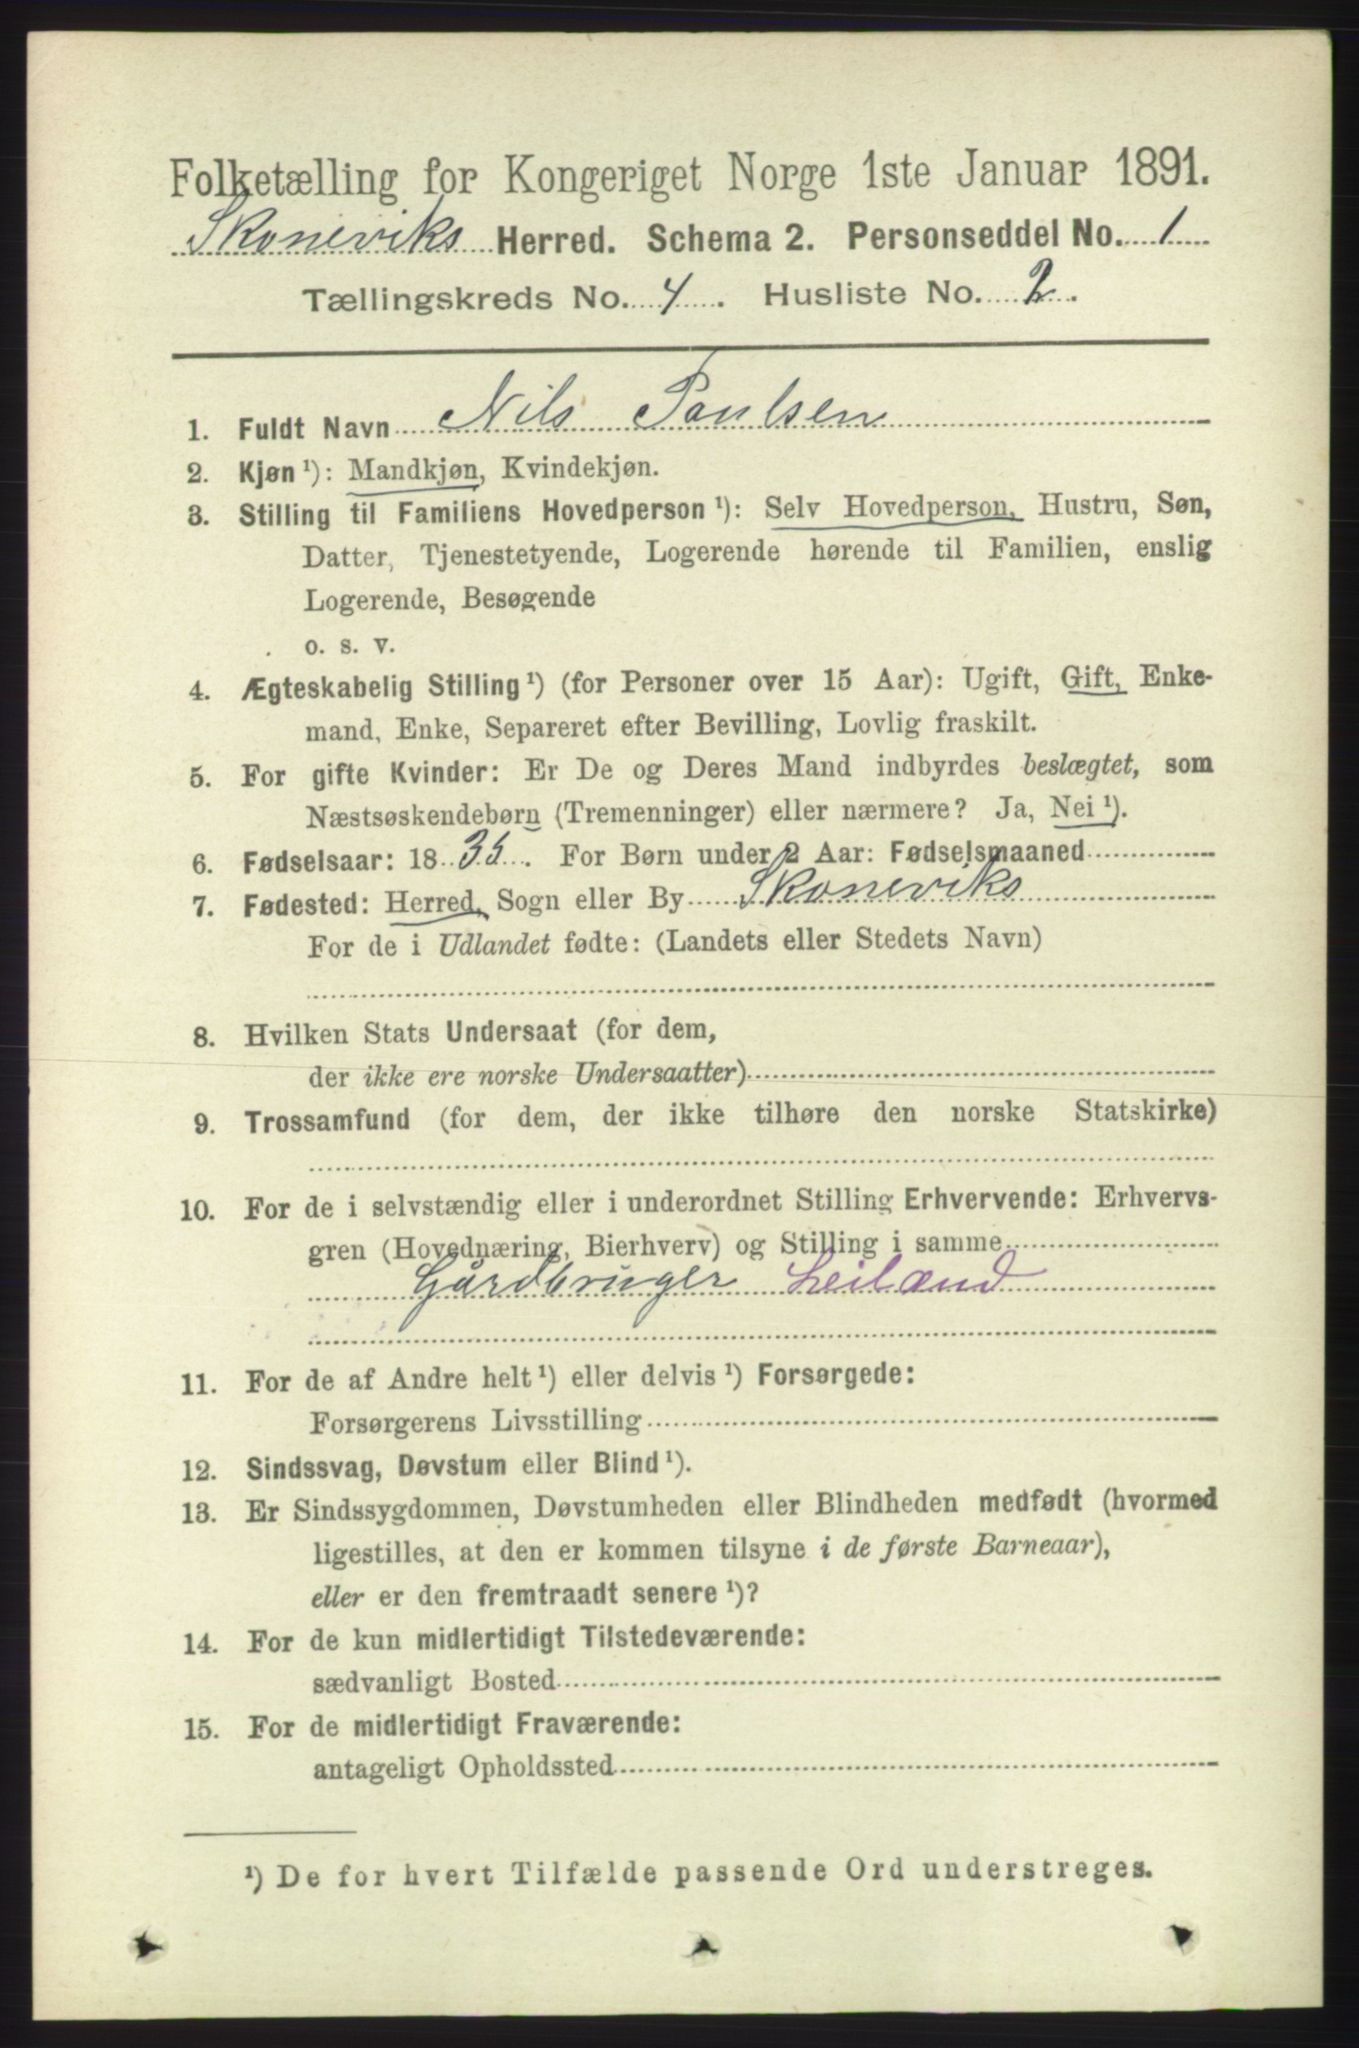 Folketælling for Kongeriget Norge 1ste Januar 1891.
Skoneviks Herred. Schema 2. Personseddel No. 1
Tællingskreds No. 4. Husliste No. 2.
1. Fuldt Navn Nils Paulsen
2. Kjøn ¹): Mandkjøn, Kvindekjøn.
3. Stilling til Familiens Hovedperson ¹): Selv Hovedperson, Hustru, Søn,
Datter, Tjenestetyende, Logerende hørende til Familien, enslig
Logerende, Besøgende
o. s. v.
4. Ægteskabelig Stilling ¹) (for Personer over 15 Aar): Ugift, Gift, Enke-
mand, Enke, Separeret efter Bevilling, Lovlig fraskilt.
5. For gifte Kvinder: Er De og Deres Mand indbyrdes beslægtet, som
Næstsøskendebørn (Tremenninger) eller nærmere? Ja, Nei ¹).
6. Fødselsaar: 1835. For Børn under 2 Aar: Fødselsmaaned
7. Fødested: Herred, Sogn eller By Skoneviks
For de i Udlandet fødte: (Landets eller Stedets Navn)
8. Hvilken Stats Undersaat (for dem,
der ikke ere norske Undersaatter)
9. Trossamfund (for dem, der ikke tilhøre den norske Statskirke)
10. For de i selvstændig eller i underordnet Stilling Erhvervende: Erhvervs-
gren (Hovednæring, Bierhverv) og Stilling i samme
Gårdbruger Leilænd
11. For de af Andre helt ¹) eller delvis ¹) Forsørgede:
Forsørgerens Livsstilling
12. Sindssvag, Døvstum eller Blind ¹).
13. Er Sindssygdommen, Døvstumheden eller Blindheden medfødt (hvormed
ligestilles, at den er kommen tilsyne i de første Barneaar),
eller er den fremtraadt senere ¹)?
14. For de kun midlertidigt Tilstedeværende:
sædvanligt Bosted
15. For de midlertidigt Fraværende:
antageligt Opholdssted
¹) De for hvert Tilfælde passende Ord understreges.